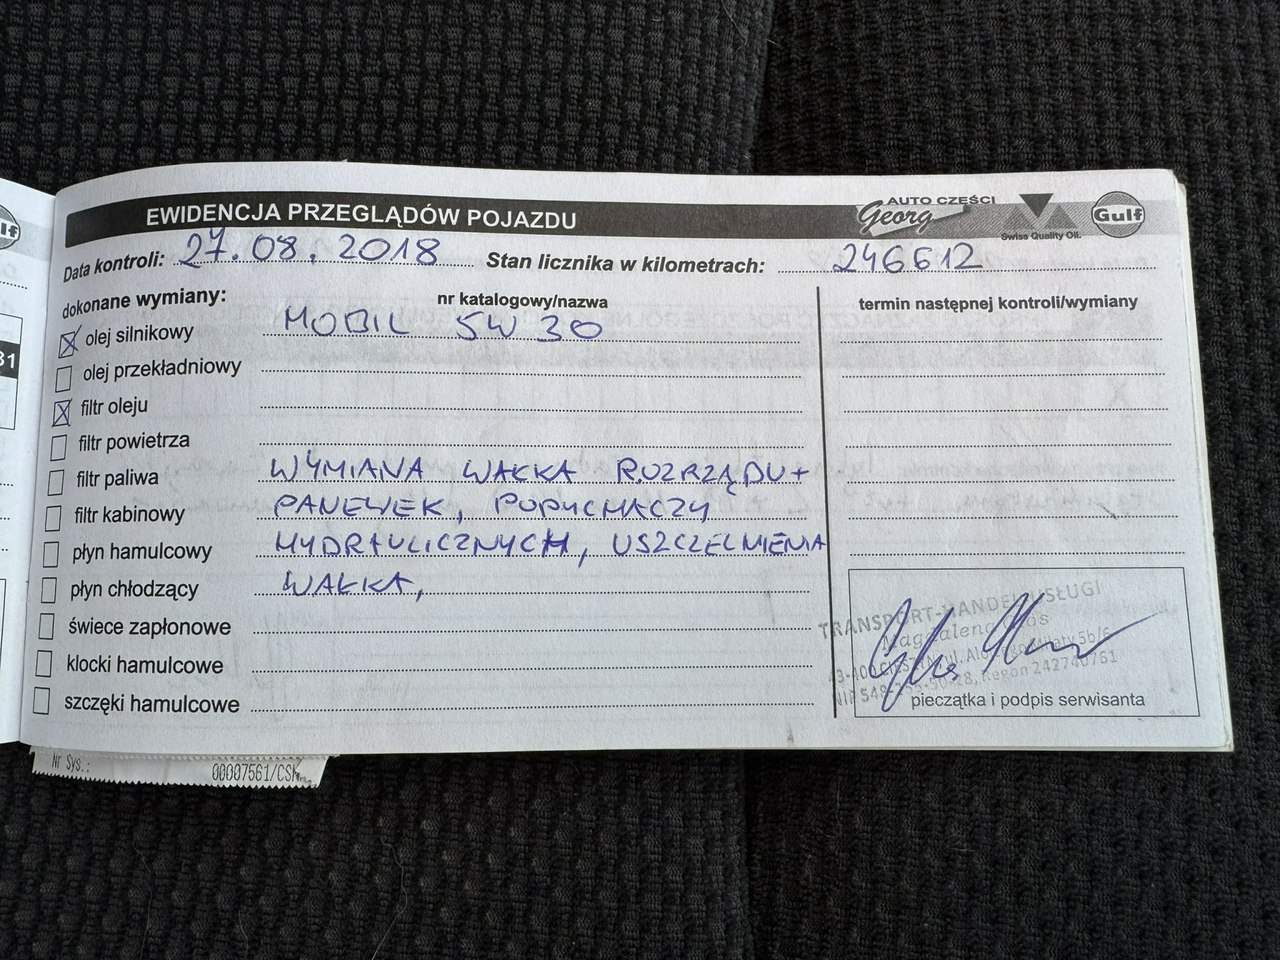 EWIDENCJA PRZEGLĄDÓW POJAZDU
AUTO CZĘŚCI
Georg
Swiss Quality Oil.
Gulf
Data kontroli: 27.08.2018 Stan licznika w kilometrach: 246612
dokonane wymiany: nr katalogowy/nazwa termin następnej kontroli/wymiany
olej silnikowy MOBIL 5W30
olej przekładniowy
filtr oleju
filtr powietrza
filtr paliwa WYMIANA WAŁKA ROZRZĄDU+
filtr kabinowy PANEWEK, POPYCHACZY
płyn hamulcowy HYDRAULICZNYCH, USZCZELNIENIA
płyn chłodzący WAŁKA,
świece zapłonowe
klocki hamulcowe
szczęki hamulcowe
TRANSPORT-HANDEL-USŁUGI
Magdalena
Regon 242740761
pieczątka i podpis serwisanta
Nr Sys.: 00007561/CSK
81